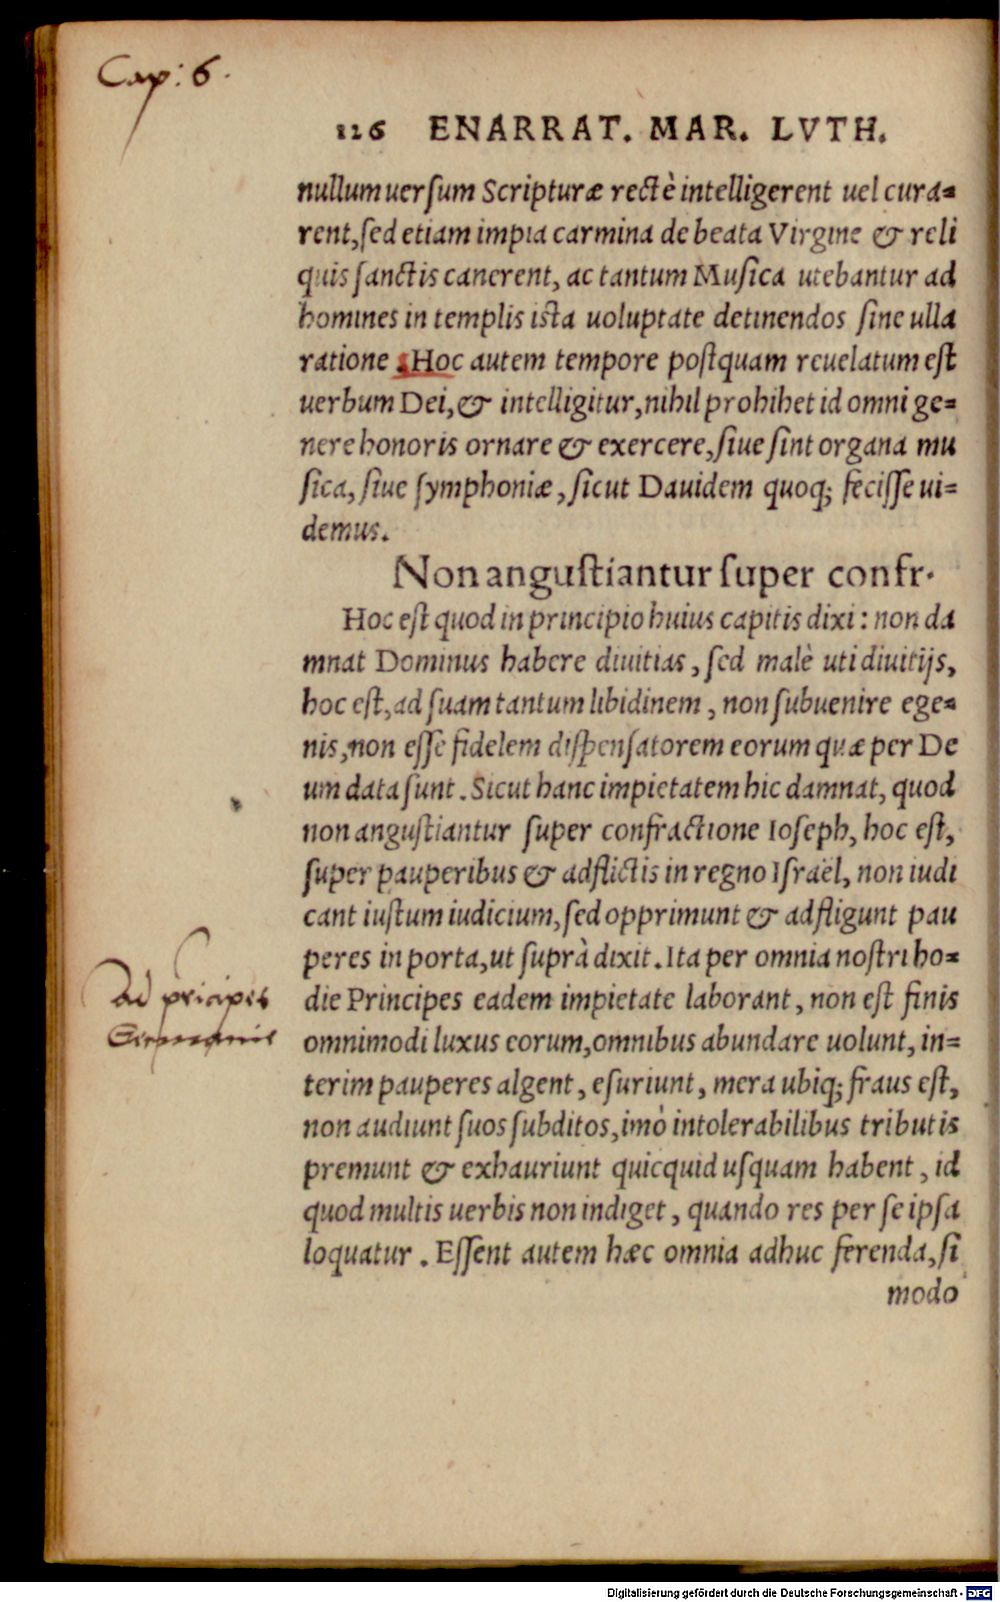 Cap: 6.
126 ENARRAT. MAR. LVTH.
nullum uersum Scripturæ rectè intelligerent uel cura=
rent, sed etiam impia carmina de beata Virgine & reli
quis sanctis canerent, ac tantum Musica utebantur ad
homines in templis ista uoluptate detinendos sine ulla
ratione. Hoc autem tempore postquam reuelatum est
uerbum Dei, & intelligitur, nihil prohibet id omni ge=
nere honoris ornare & exercere, siue sint organa mu
sica, siue symphoniæ, sicut Dauidem quoq; fecisse ui=
demus.
Non angustiantur super confr.
Hoc est quod in principio huius capitis dixi: non da
mnat Dominus habere diuitias, sed malè uti diuitijs,
hoc est, ad suam tantum libidinem, non subuenire ege=
nis, non esse fidelem dispensatorem eorum quæ per De
um data sunt. Sicut hanc impietatem hic damnat, quod
non angustiantur super confractione Ioseph, hoc est,
super pauperibus & adflictis in regno Israël, non iudi
cant iustum iudicium, sed opprimunt & adfligunt pau
peres in porta, ut suprà dixit. Ita per omnia nostri ho=
die Principes eadem impietate laborant, non est finis
omnimodi luxus eorum, omnibus abundare uolunt, in=
terim pauperes algent, esuriunt, mera ubiq; fraus est,
non audiunt suos subditos, imò intolerabilibus tributis
premunt & exhauriunt quicquid usquam habent, id
quod multis uerbis non indiget, quando res per se ipsa
loquatur. Essent autem hæc omnia adhuc ferenda, si
modo
Ad pricipes
Germanie
Digitalisierung gefördert durch die Deutsche Forschungsgemeinschaft - DFG